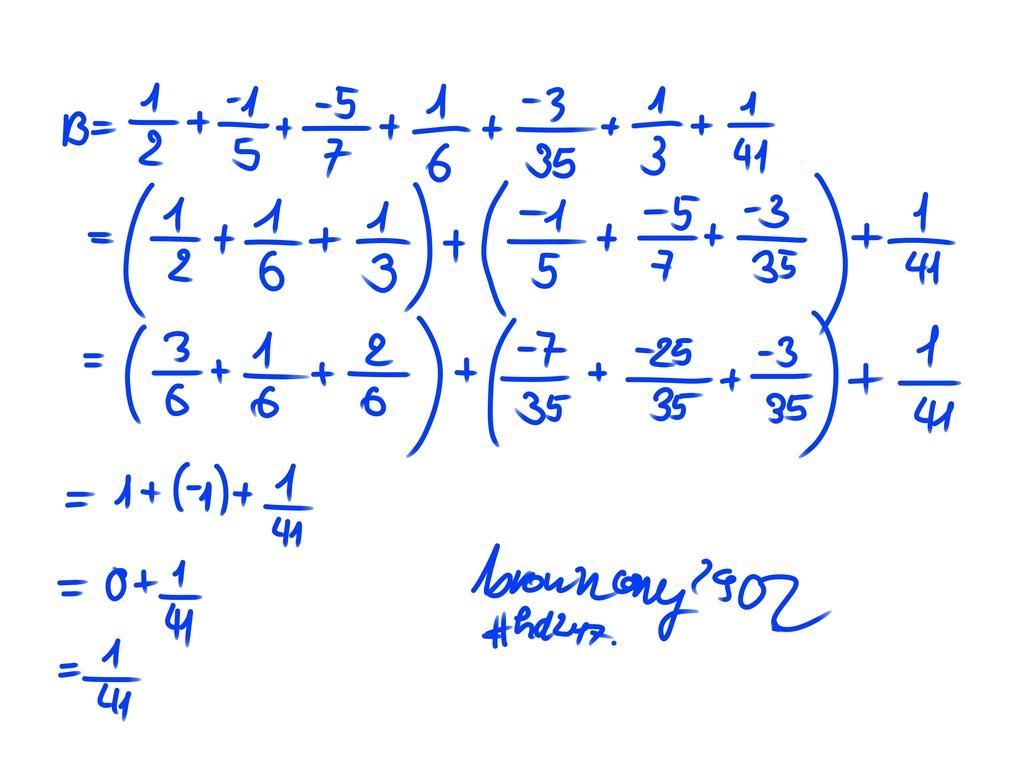 B = 1/2 + -1/5 + -5/7 + 1/6 + -3/35 + 1/3 + 1/41
= (1/2 + 1/6 + 1/3) + (-1/5 + -5/7 + -3/35) + 1/41
= (3/6 + 1/6 + 2/6) + (-7/35 + -25/35 + -3/35) + 1/41
= 1 + (-1) + 1/41
= 0 + 1/41
= 1/41
#hd247.